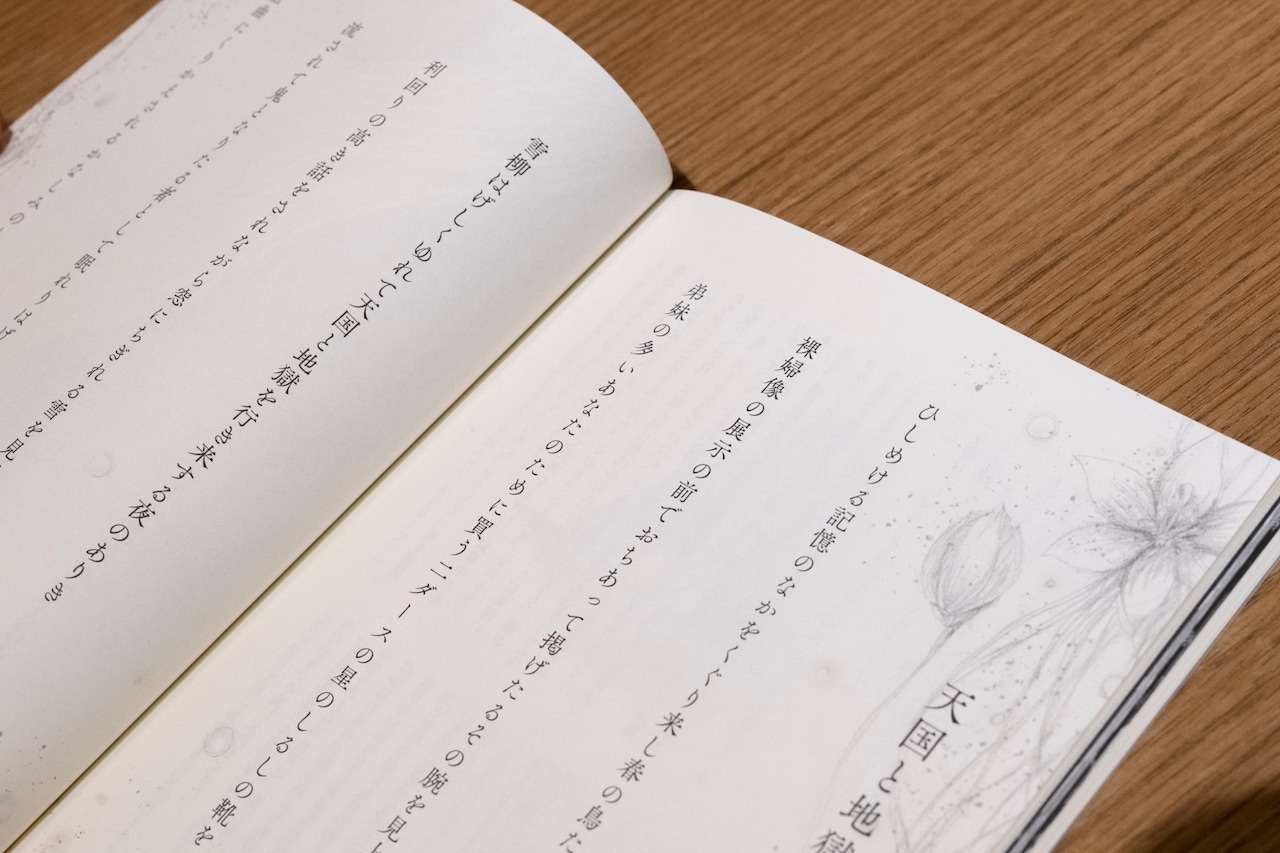 天国と地獄
ひしめける記憶のなかをくぐり来し春の鳥た
裸婦像の展示の前でおちあって掲げたるその腕を見し
弟妹の多いあなたのために買う二ダースの星のしるしの靴を
雪柳はげしくゆれて天国と地獄を行き来する夜のありき
利回りの高き話をされながら窓にちぎれる雪を見
流されて鬼となりたる者として眠れりはげ
曲にくりかえされるかなしみの